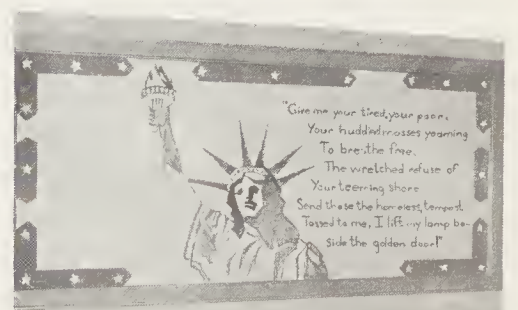 "Give me your tired, your poor,
Your huddled masses yearning
To breathe free.
The wretched refuse of
Your teeming shore
Send these the homeless, tempest
Tossed to me, I lift my lamp be-
side the golden door!"